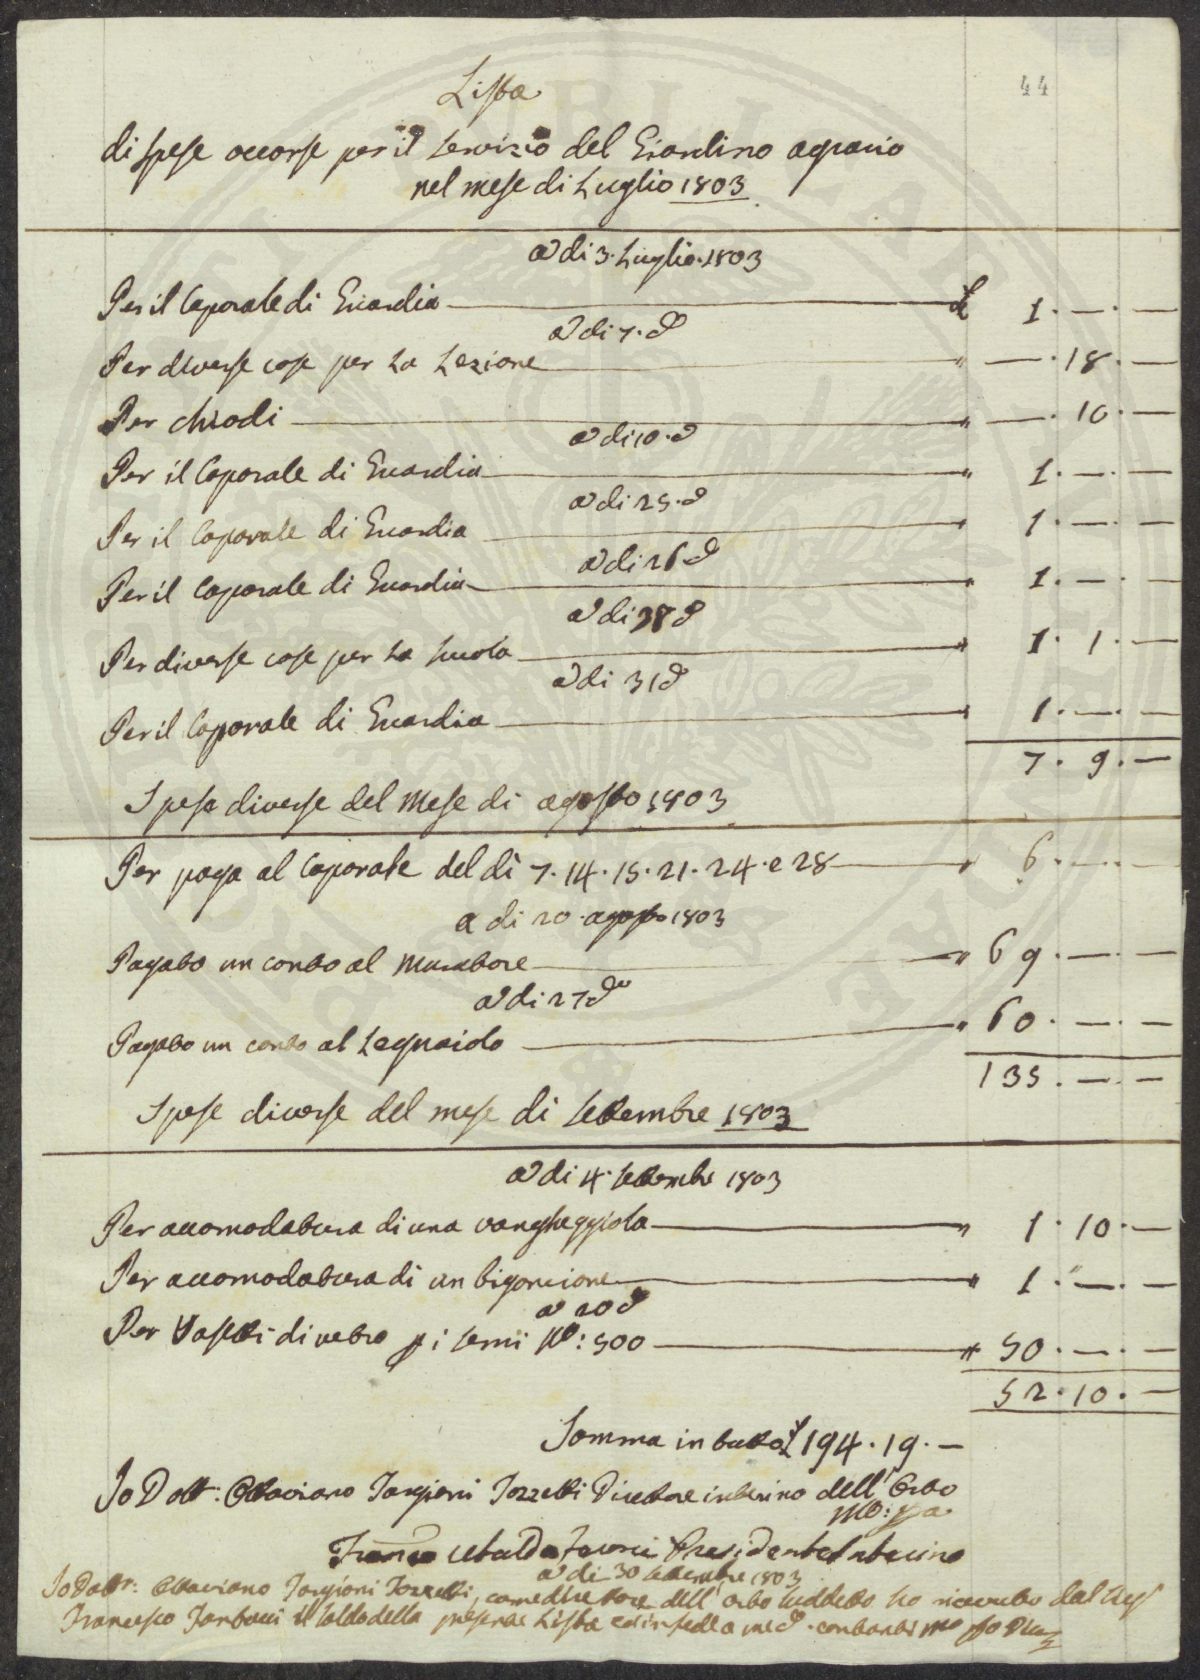 44
Lista
di spese occorse per il servizio del Giardino agrario
nel mese di Luglio 1803
a dì 3. Luglio. 1803
Per il Caporale di Guardia £ 1. —. —
a dì 7. do
Per diverse cose per la Lezione " —. 18. —
Per chiodi " —. 10. —
a dì 10. do
Per il Caporale di Guardia " 1. —. —
a dì 25. do
Per il Caporale di Guardia " 1. —. —
a dì 26 do
Per il Caporale di Guardia " 1. —. —
a dì 38 do
Per diverse cose per la scuola " 1. 1. —
a dì 31 do
Per il Caporale di Guardia " 1. —. —
7. 9. —
Spese diverse del Mese di agosto 1803
Per paga al Caporale del dì 7. 14. 15. 21. 24. e 28 " 6. —. —
a dì 20. agosto 1803
Pagato un conto al Muratore " 69. —. —
a dì 27 do
Pagato un conto al Legnaiolo " 60. —. —
135. —. —
Spese diverse del mese di settembre 1803
a dì 4. settembre 1803
Per accomodatura di una vangheggiola " 1. 10. —
Per accomodatura di un bigoncione " 1. —. —
a 20 do
Per Vasetti di vetro p i semi No: 500 " 50. —. —
52. 10. —
Somma in tutto £ 194. 19. —
Io Dott: Ottaviano Targioni Tozzetti Direttore interino dell' Orto
mo: pa
Franco Ubaldo Presidente Interino
a dì 30 settembre 1803
Io Dottr: Ottaviano Targioni Tozzetti, come direttore dell' orto suddetto ho ricevuto dal
Francesco il saldo della presente Lista ed in fede a me do. contanti mo ppo